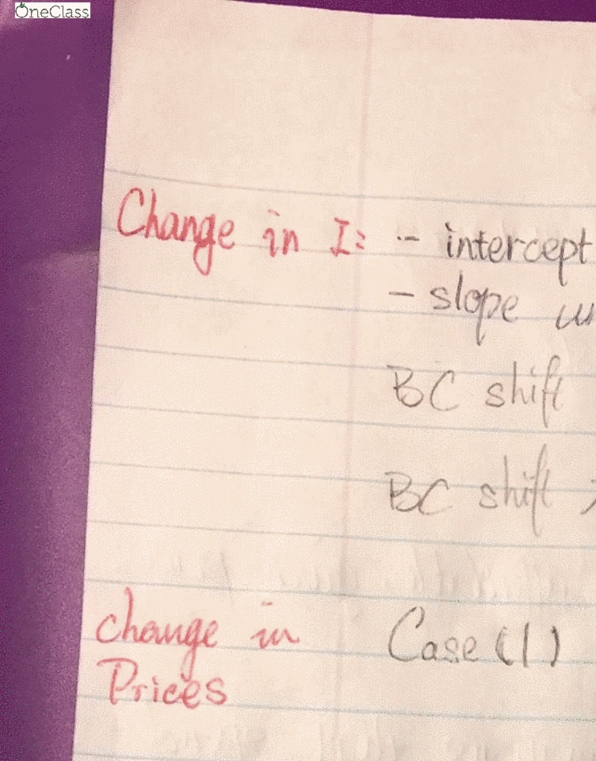 OneClass
Change in I: - intercept
- slope
BC shift
BC shift
change in
Prices
Case (1)